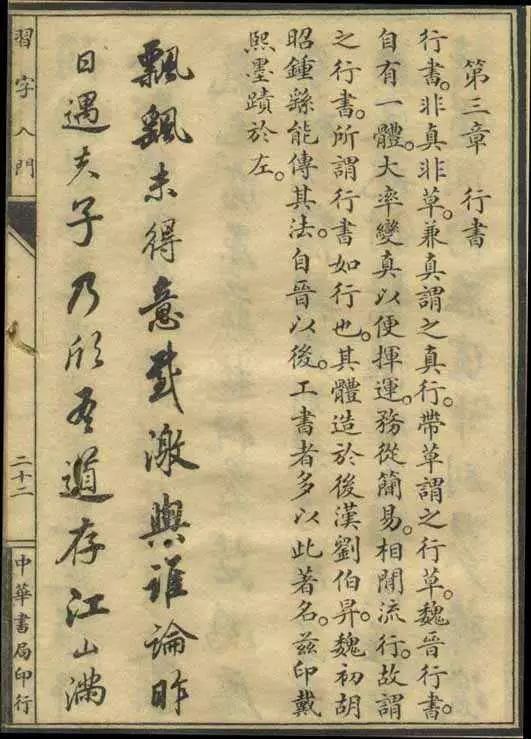 第三章　行書
行書。非真非草。兼真謂之真行。帶草謂之行草。魏晉行書。
自有一體。大率變真以便揮運。務從簡易。相閒流行。故謂
之行書。所謂行書如行也。其體造於後漢劉伯昇。魏初胡
昭鍾繇能傳其法。自晉以後。工書者多以此著名。茲印戴
熙墨蹟於左。
飄飄未得意感激與誰論昨
日遇夫子乃欣吾道存江山滿
習字入門
二十二
中華書局印行